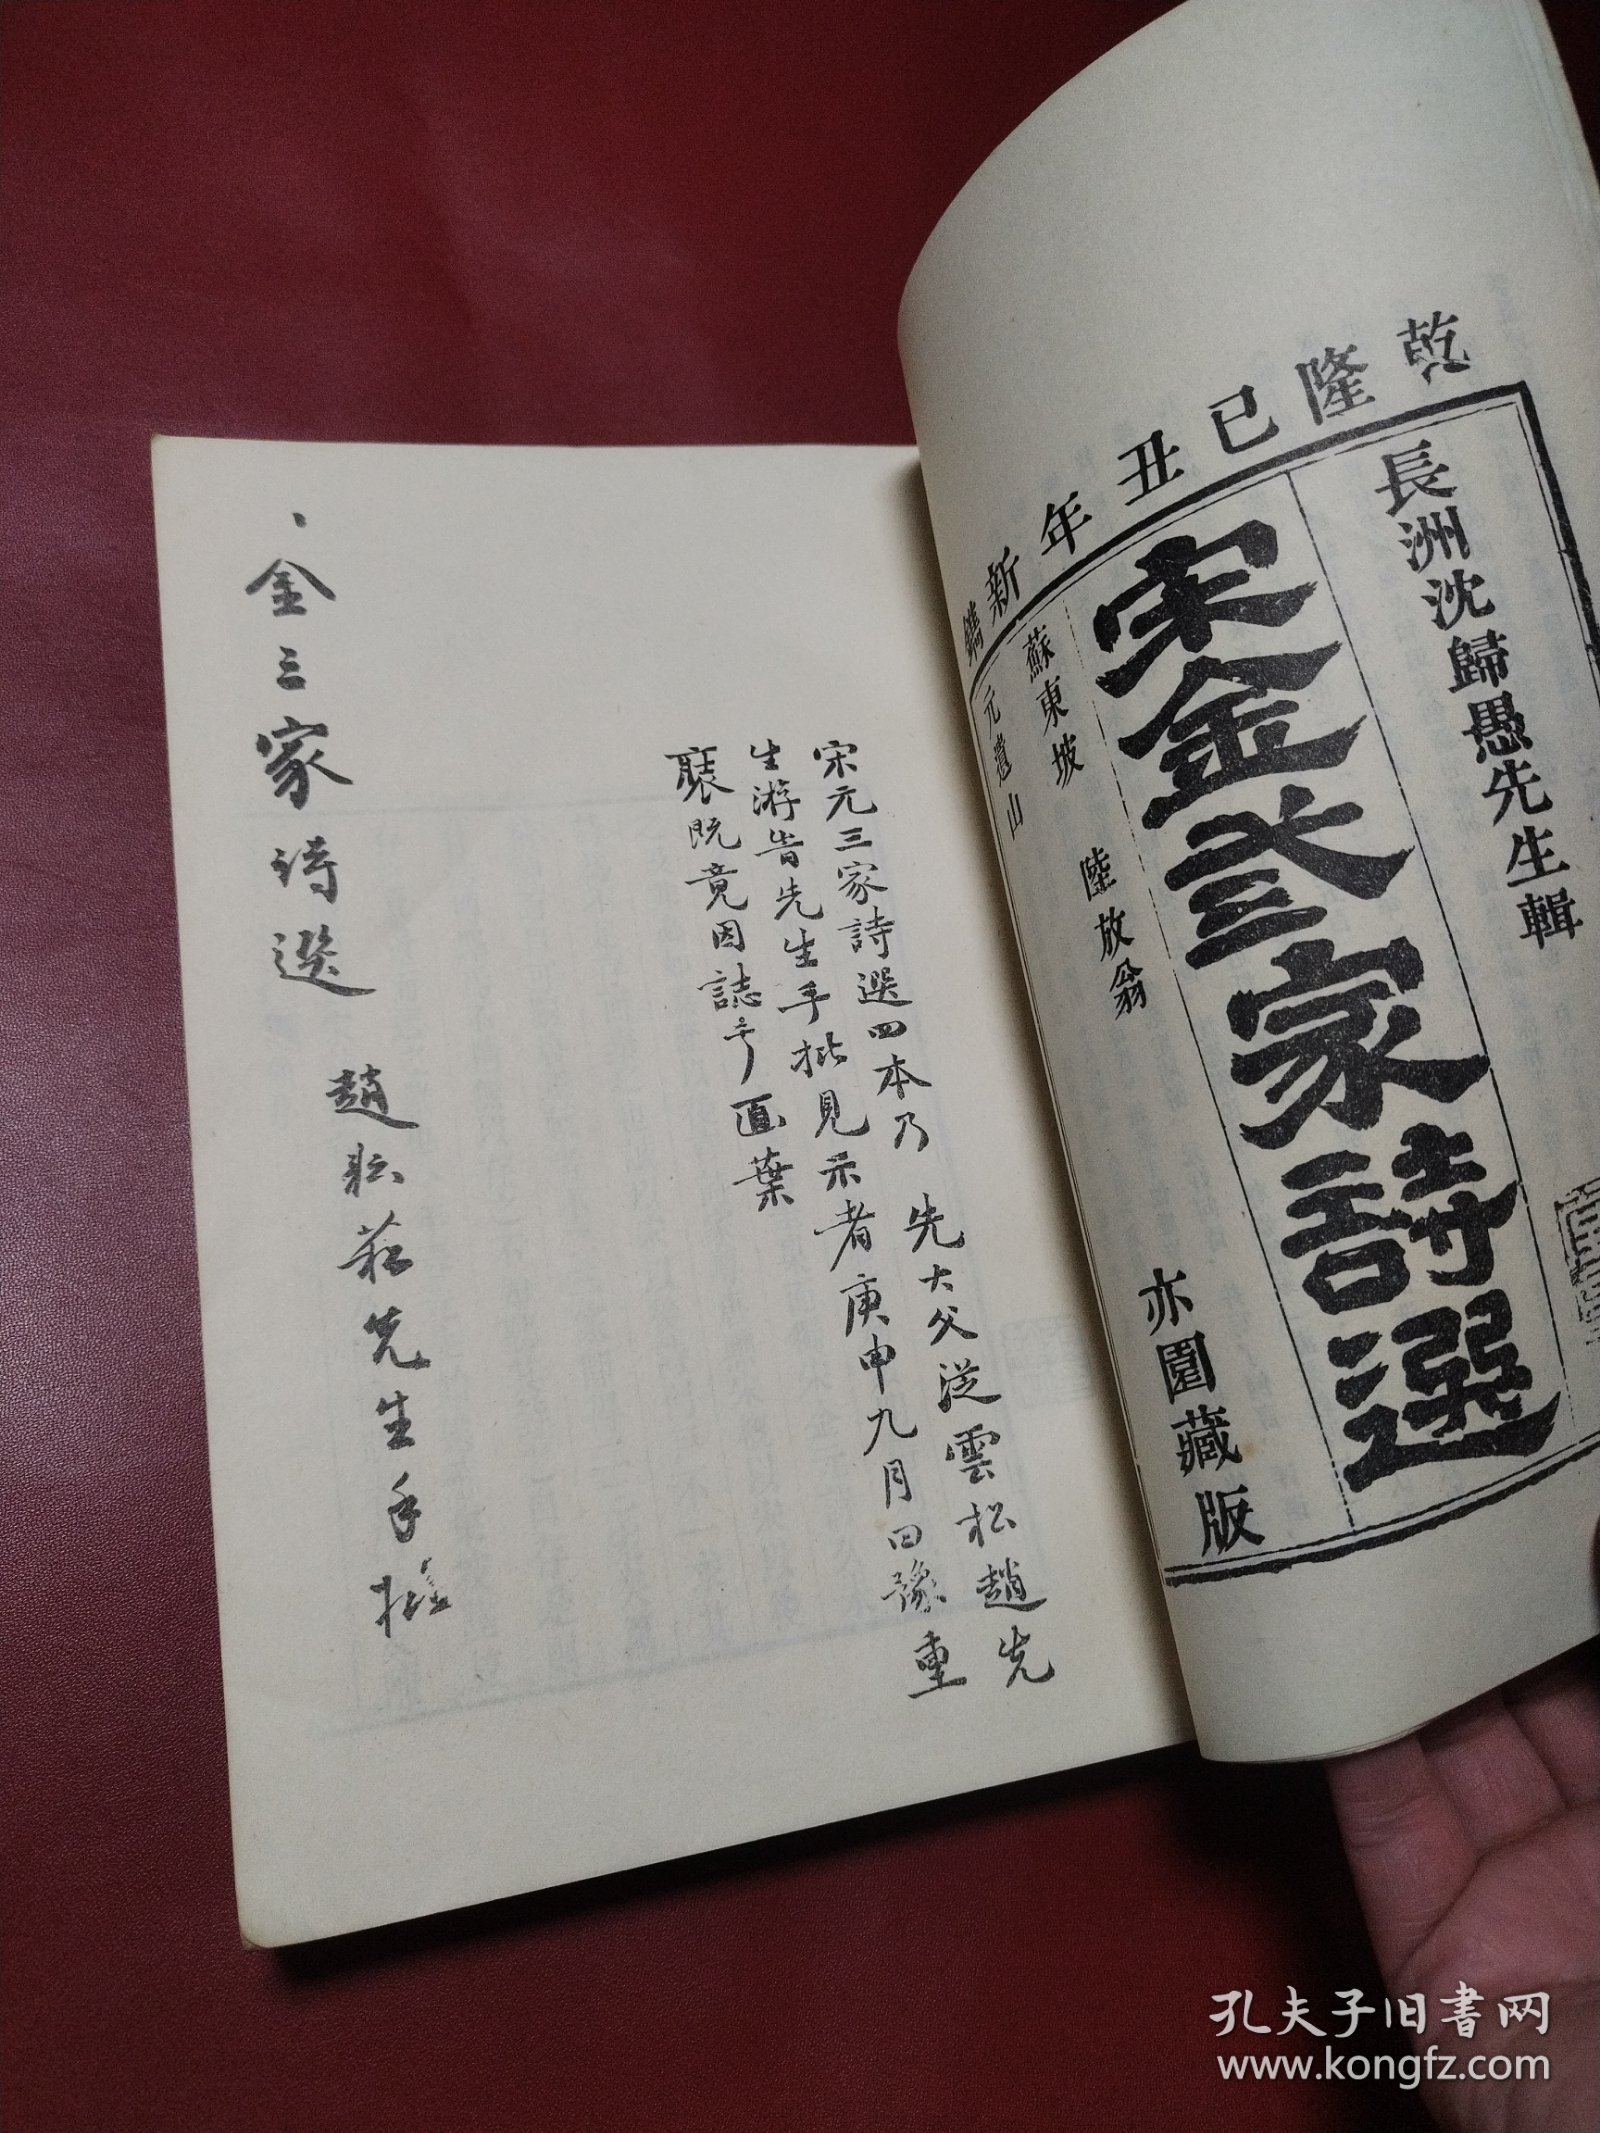 乾隆已丑年新鐫
長洲沈歸愚先生輯
宋金叁家詩選
蘇東坡 陸放翁
元遺山
亦園藏版
宋元三家詩選四本乃 先大父從雲松趙先
生游旹先生手批見示者庚申九月日豫重
裝既竟因誌于面葉
金三家詩選 趙耘菘先生手批
孔夫子旧书网
www.kongfz.com